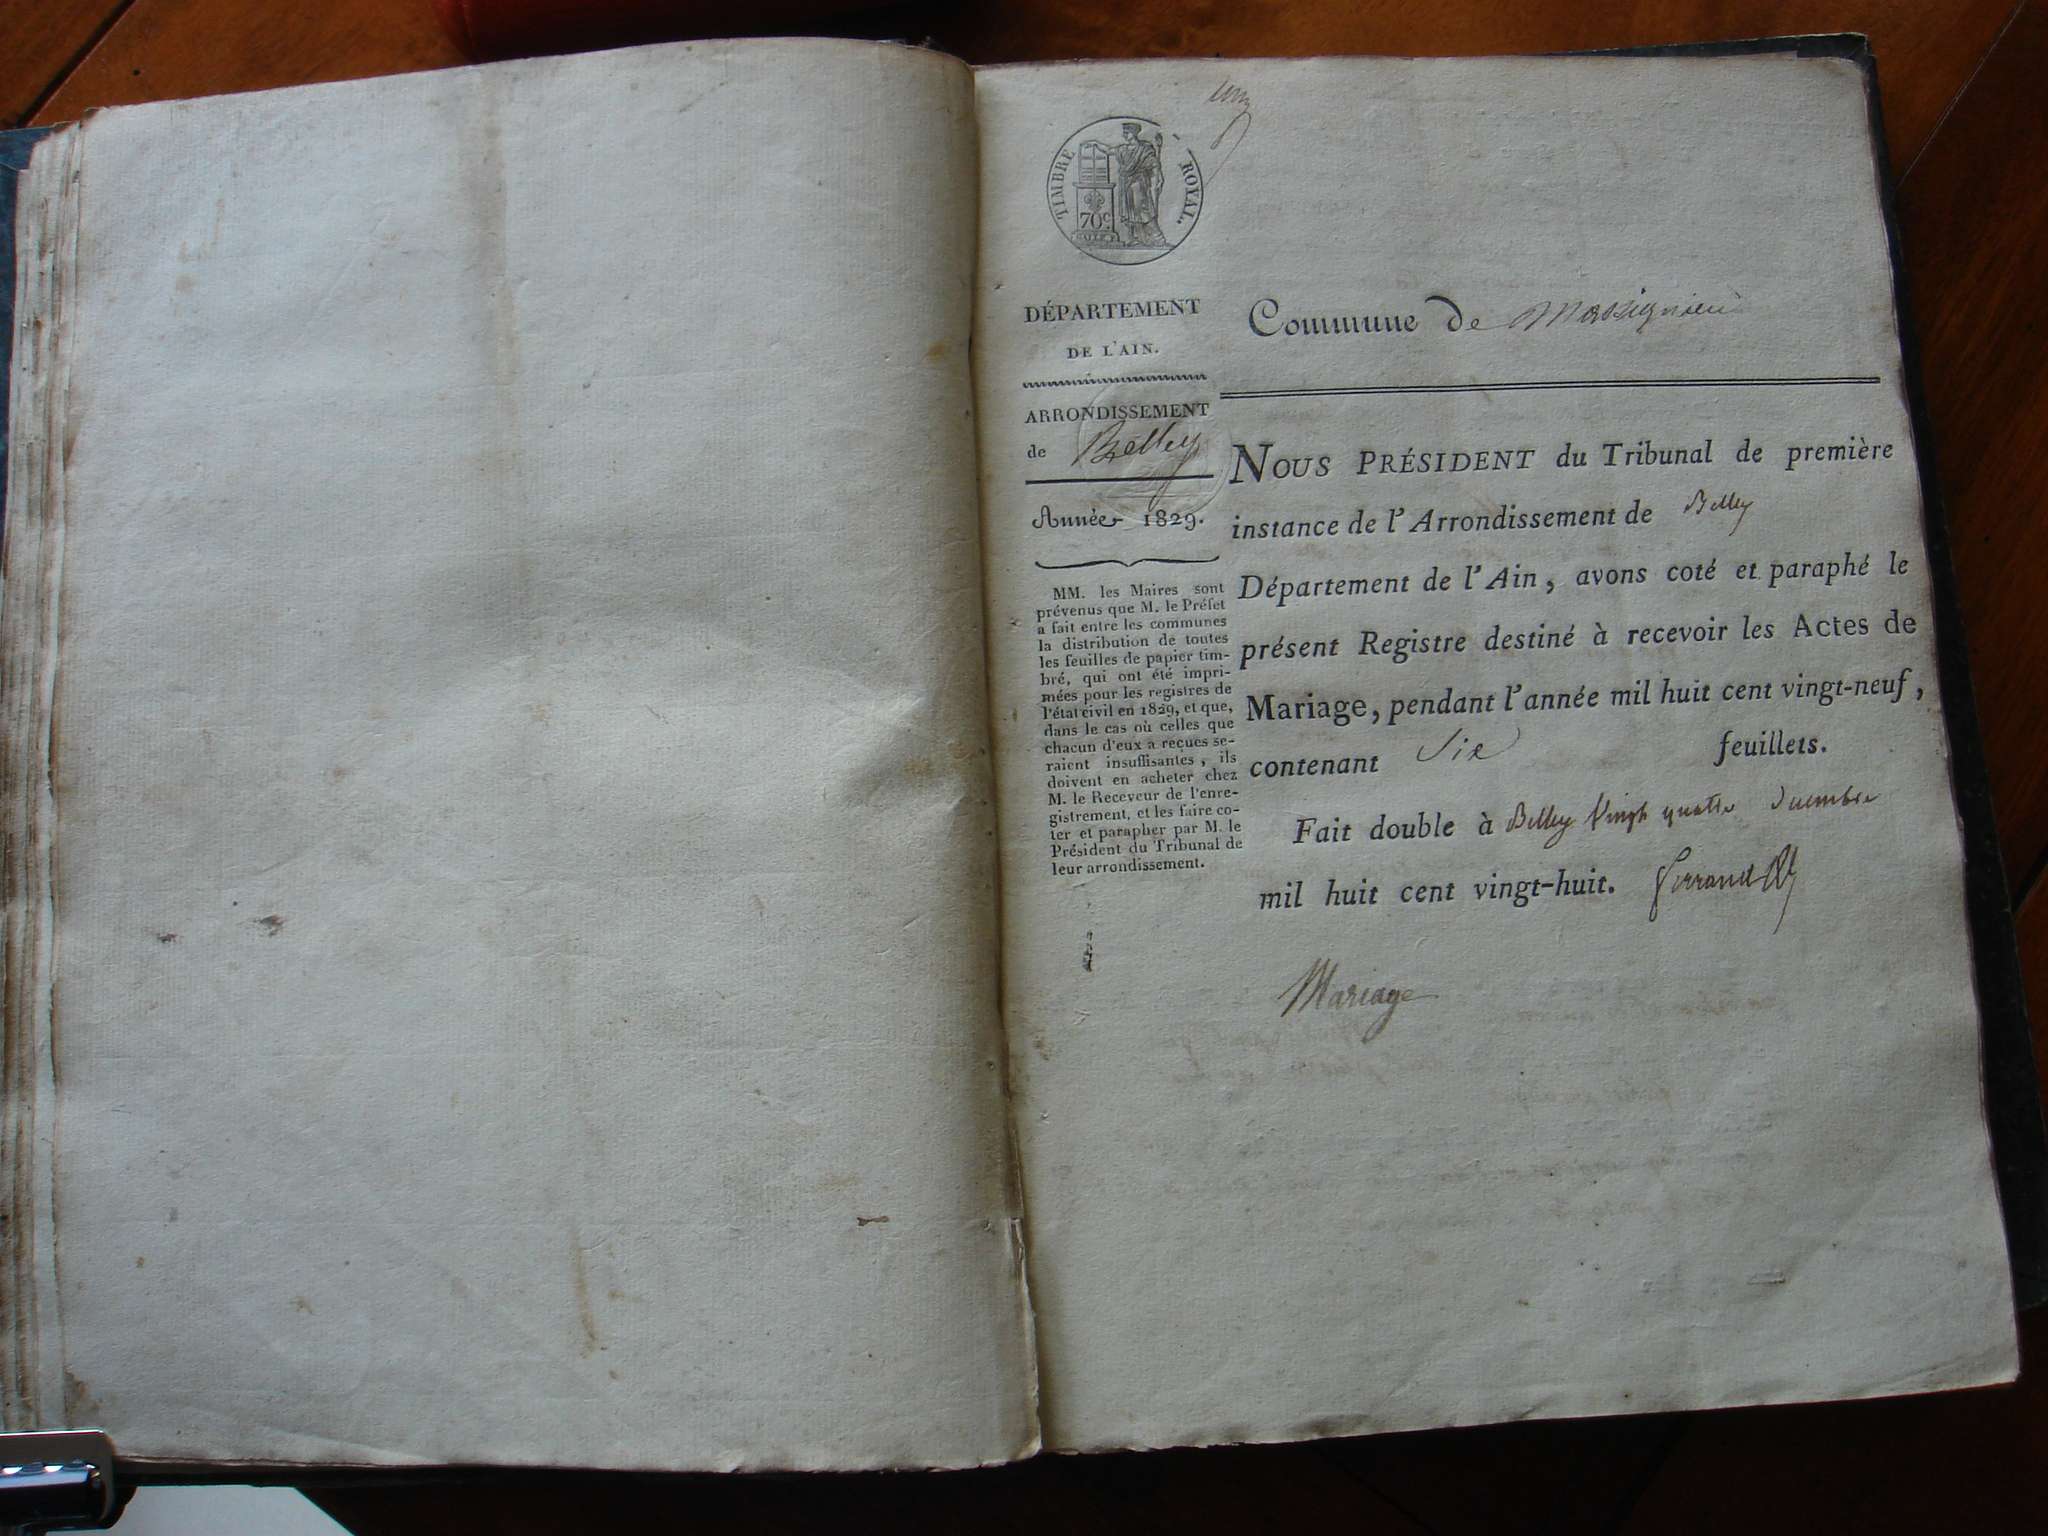 TIMBRE ROYAL.
70c.
DÉPARTEMENT
DE L'AIN.
ARRONDISSEMENT
de Belley
Année 1829.
MM. les Maires sont
prévenus que M. le Préfet
a fait entre les communes
la distribution de toutes
les feuilles de papier tim-
bré, qui ont été impri-
mées pour les registres de
l'état civil en 1829, et que,
dans le cas où celles que
chacun d'eux a reçues se-
raient insuffisantes, ils
doivent en acheter chez
M. le Receveur de l'enre-
gistrement, et les faire co-
ter et parapher par M. le
Président du Tribunal de
leur arrondissement.
Commune de Massignieu
NOUS PRÉSIDENT du Tribunal de première
instance de l'Arrondissement de Belley
Département de l'Ain, avons coté et paraphé le
présent Registre destiné à recevoir les Actes de
Mariage, pendant l'année mil huit cent vingt-neuf,
contenant Six feuillets.
Fait double à Belley vingt quatre décembre
mil huit cent vingt-huit.
Mariage